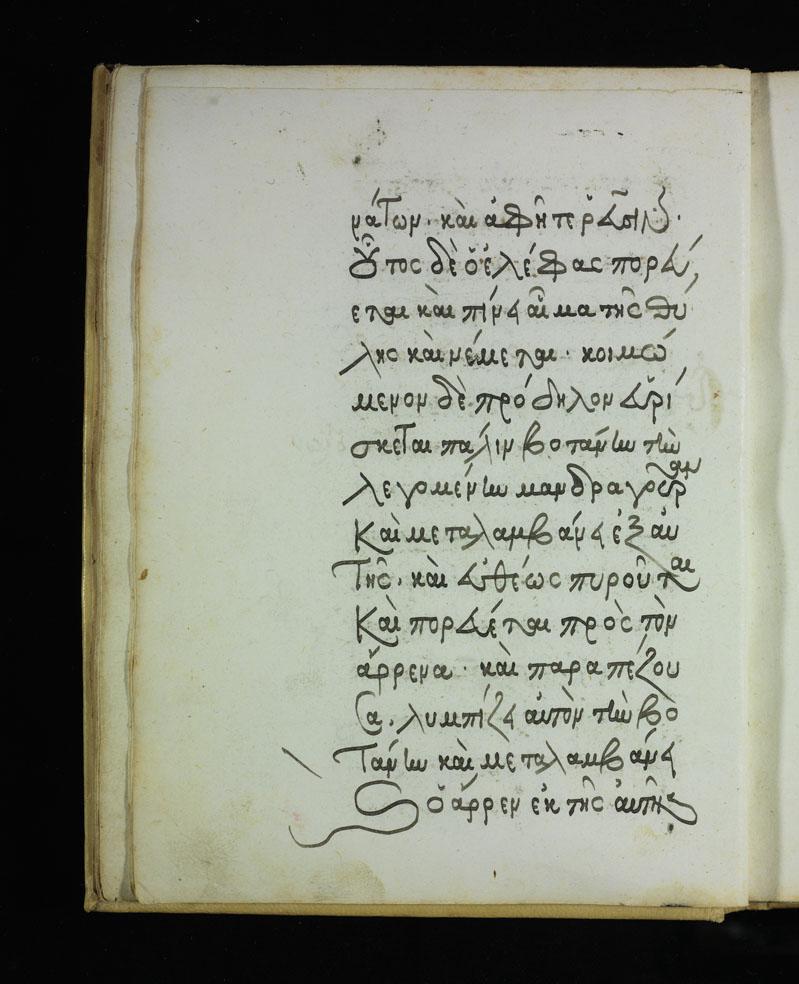 νάτων. καὶ
οὗτος δὲ ὁ ἐλέφας πορεύ
εται καὶ πίνει αἷμα τῆς θύ
λης καὶ νέμεται· κοιμώ
μενον δὲ πρόδηλον εὑρί
σκεται πάλιν βοτάνην τὴν
λεγομένην μανδραγούραν
Καὶ μεταλαμβάνει ἐξ αὐ
τῆς. καὶ εὐθέως πυροῦται
Καὶ πορεύεται πρὸς τὸν
ἄρρενα· καὶ παραπέζου
σα. λυμπίζει αὐτὸν τὴν βο
τάνην καὶ μεταλαμβάνει
ὁ ἄρρεν ἐκ τῆς αὐτῆς